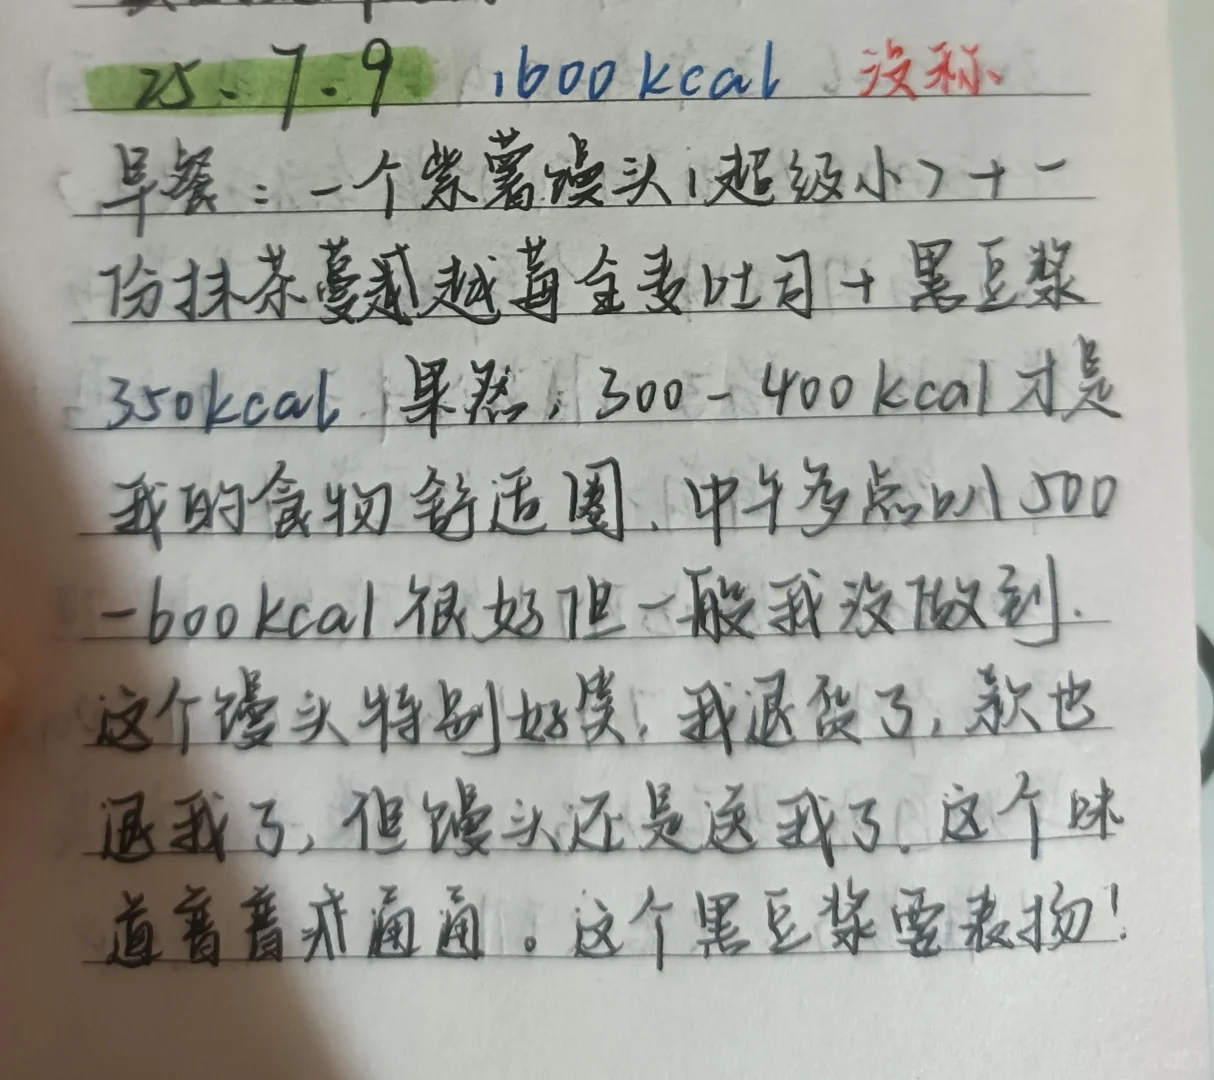 25.7.9 1600kcal 没称
早餐：一个紫薯馒头(超级小)+一
份抹茶蔓越莓全麦吐司+黑豆浆
350kcal 果然，300-400kcal才是
我的食物舒适圈，中午多点以500
-600kcal很好但一般我没做到.
这个馒头特别好笑，我退货了，款也
退我了，但馒头还是送我了.这个味
道普普通通。这个黑豆浆要表扬！